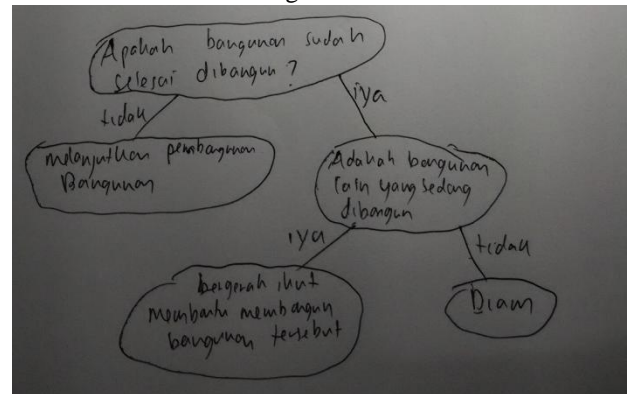 Apakah bangunan sudah
selesai dibangun?
tidak
iya
melanjutkan pembangunan
Bangunan
Adakah bangunan
lain yang sedang
dibangun
iya
tidak
bergerak ikut
membantu membangun
bangunan tersebut
Diam